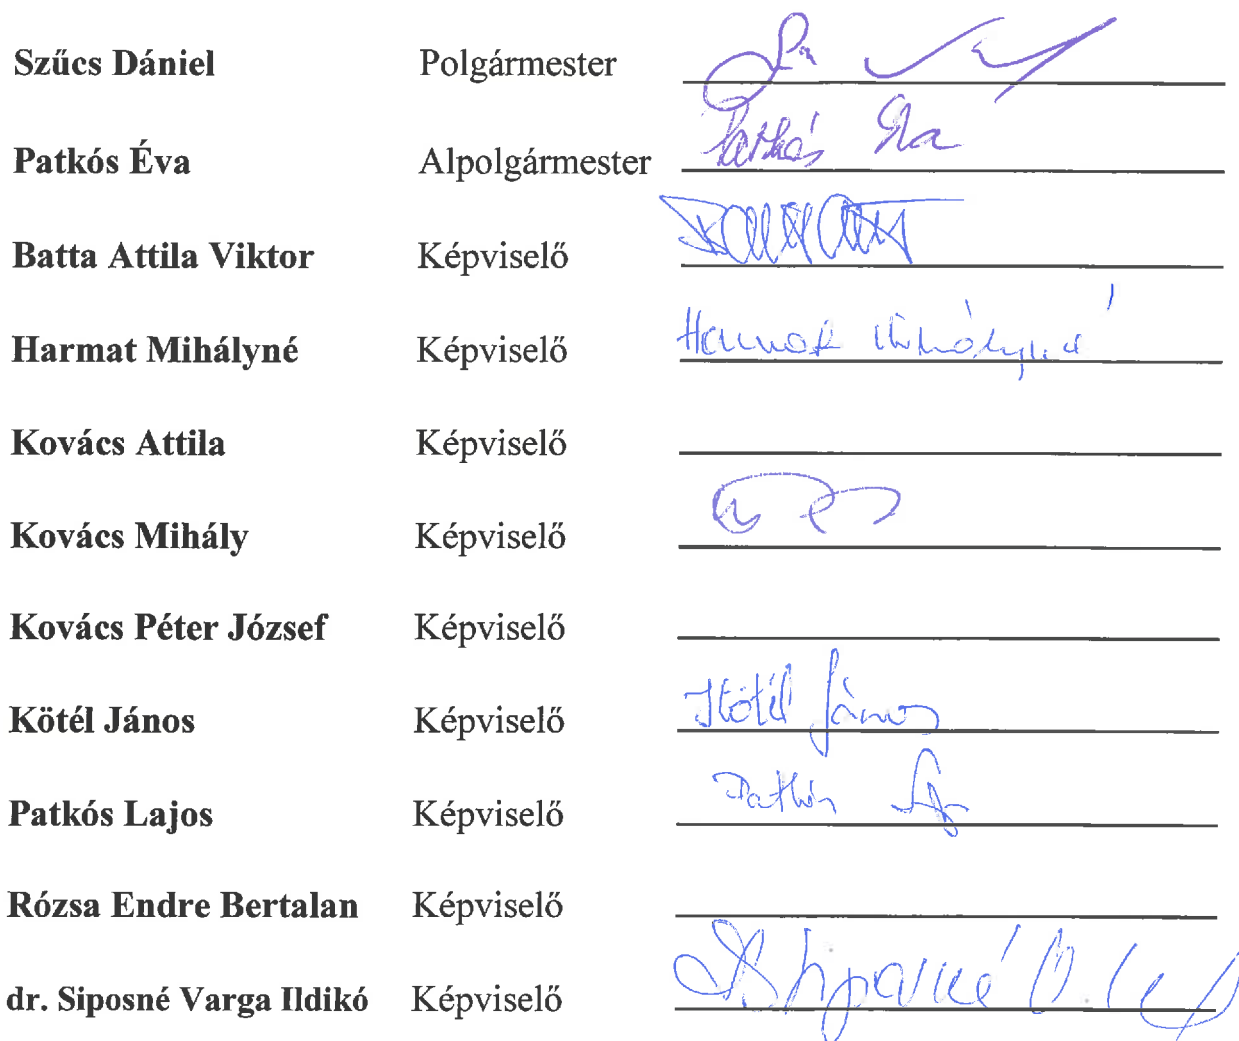 Szűcs Dániel Polgármester
Patkós Éva Alpolgármester Patkós Éva
Batta Attila Viktor Képviselő
Harmat Mihályné Képviselő Harmat Mihályné
Kovács Attila Képviselő
Kovács Mihály Képviselő
Kovács Péter József Képviselő
Kötél János Képviselő Kötél János
Patkós Lajos Képviselő Patkós
Rózsa Endre Bertalan Képviselő
dr. Siposné Varga Ildikó Képviselő dr Siposné V.